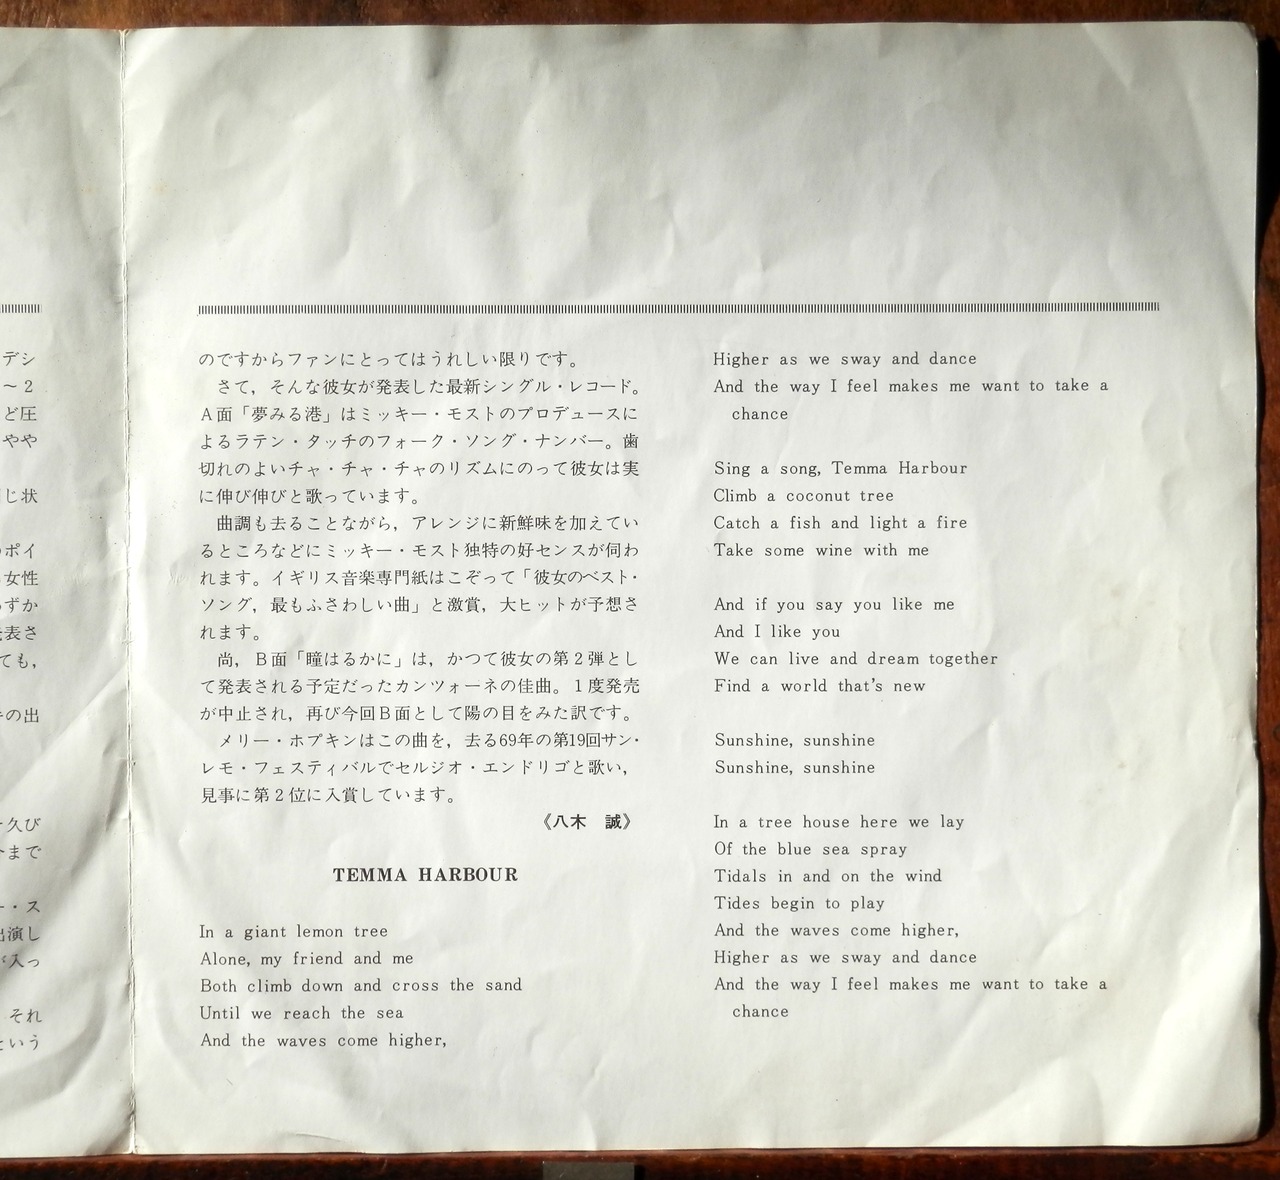 デシ
～2
ど圧
やや
じ状
ポイ
女性
ずか
表さ
ても，
の出
久び
まで
・ス
演し
入っ
それ
いう
のですからファンにとってはうれしい限りです。
さて，そんな彼女が発表した最新シングル・レコード。
A面「夢みる港」はミッキー・モストのプロデュースに
よるラテン・タッチのフォーク・ソング・ナンバー。歯
切れのよいチャ・チャ・チャのリズムにのって彼女は実
に伸び伸びと歌っています。
曲調も去ることながら，アレンジに新鮮味を加えてい
るところなどにミッキー・モスト独特の好センスが伺わ
れます。イギリス音楽専門紙はこぞって「彼女のベスト・
ソング，最もふさわしい曲」と激賞，大ヒットが予想さ
れます。
尚，B面「瞳はるかに」は，かつて彼女の第2弾とし
て発表される予定だったカンツォーネの佳曲。1度発売
が中止され，再び今回B面として陽の目をみた訳です。
メリー・ホプキンはこの曲を，去る69年の第19回サン・
レモ・フェスティバルでセルジオ・エンドリゴと歌い，
見事に第2位に入賞しています。
《八木　誠》
TEMMA HARBOUR
In a giant lemon tree
Alone, my friend and me
Both climb down and cross the sand
Until we reach the sea
And the waves come higher,
Higher as we sway and dance
And the way I feel makes me want to take a
chance
Sing a song, Temma Harbour
Climb a coconut tree
Catch a fish and light a fire
Take some wine with me
And if you say you like me
And I like you
We can live and dream together
Find a world that's new
Sunshine, sunshine
Sunshine, sunshine
In a tree house here we lay
Of the blue sea spray
Tidals in and on the wind
Tides begin to play
And the waves come higher,
Higher as we sway and dance
And the way I feel makes me want to take a
chance